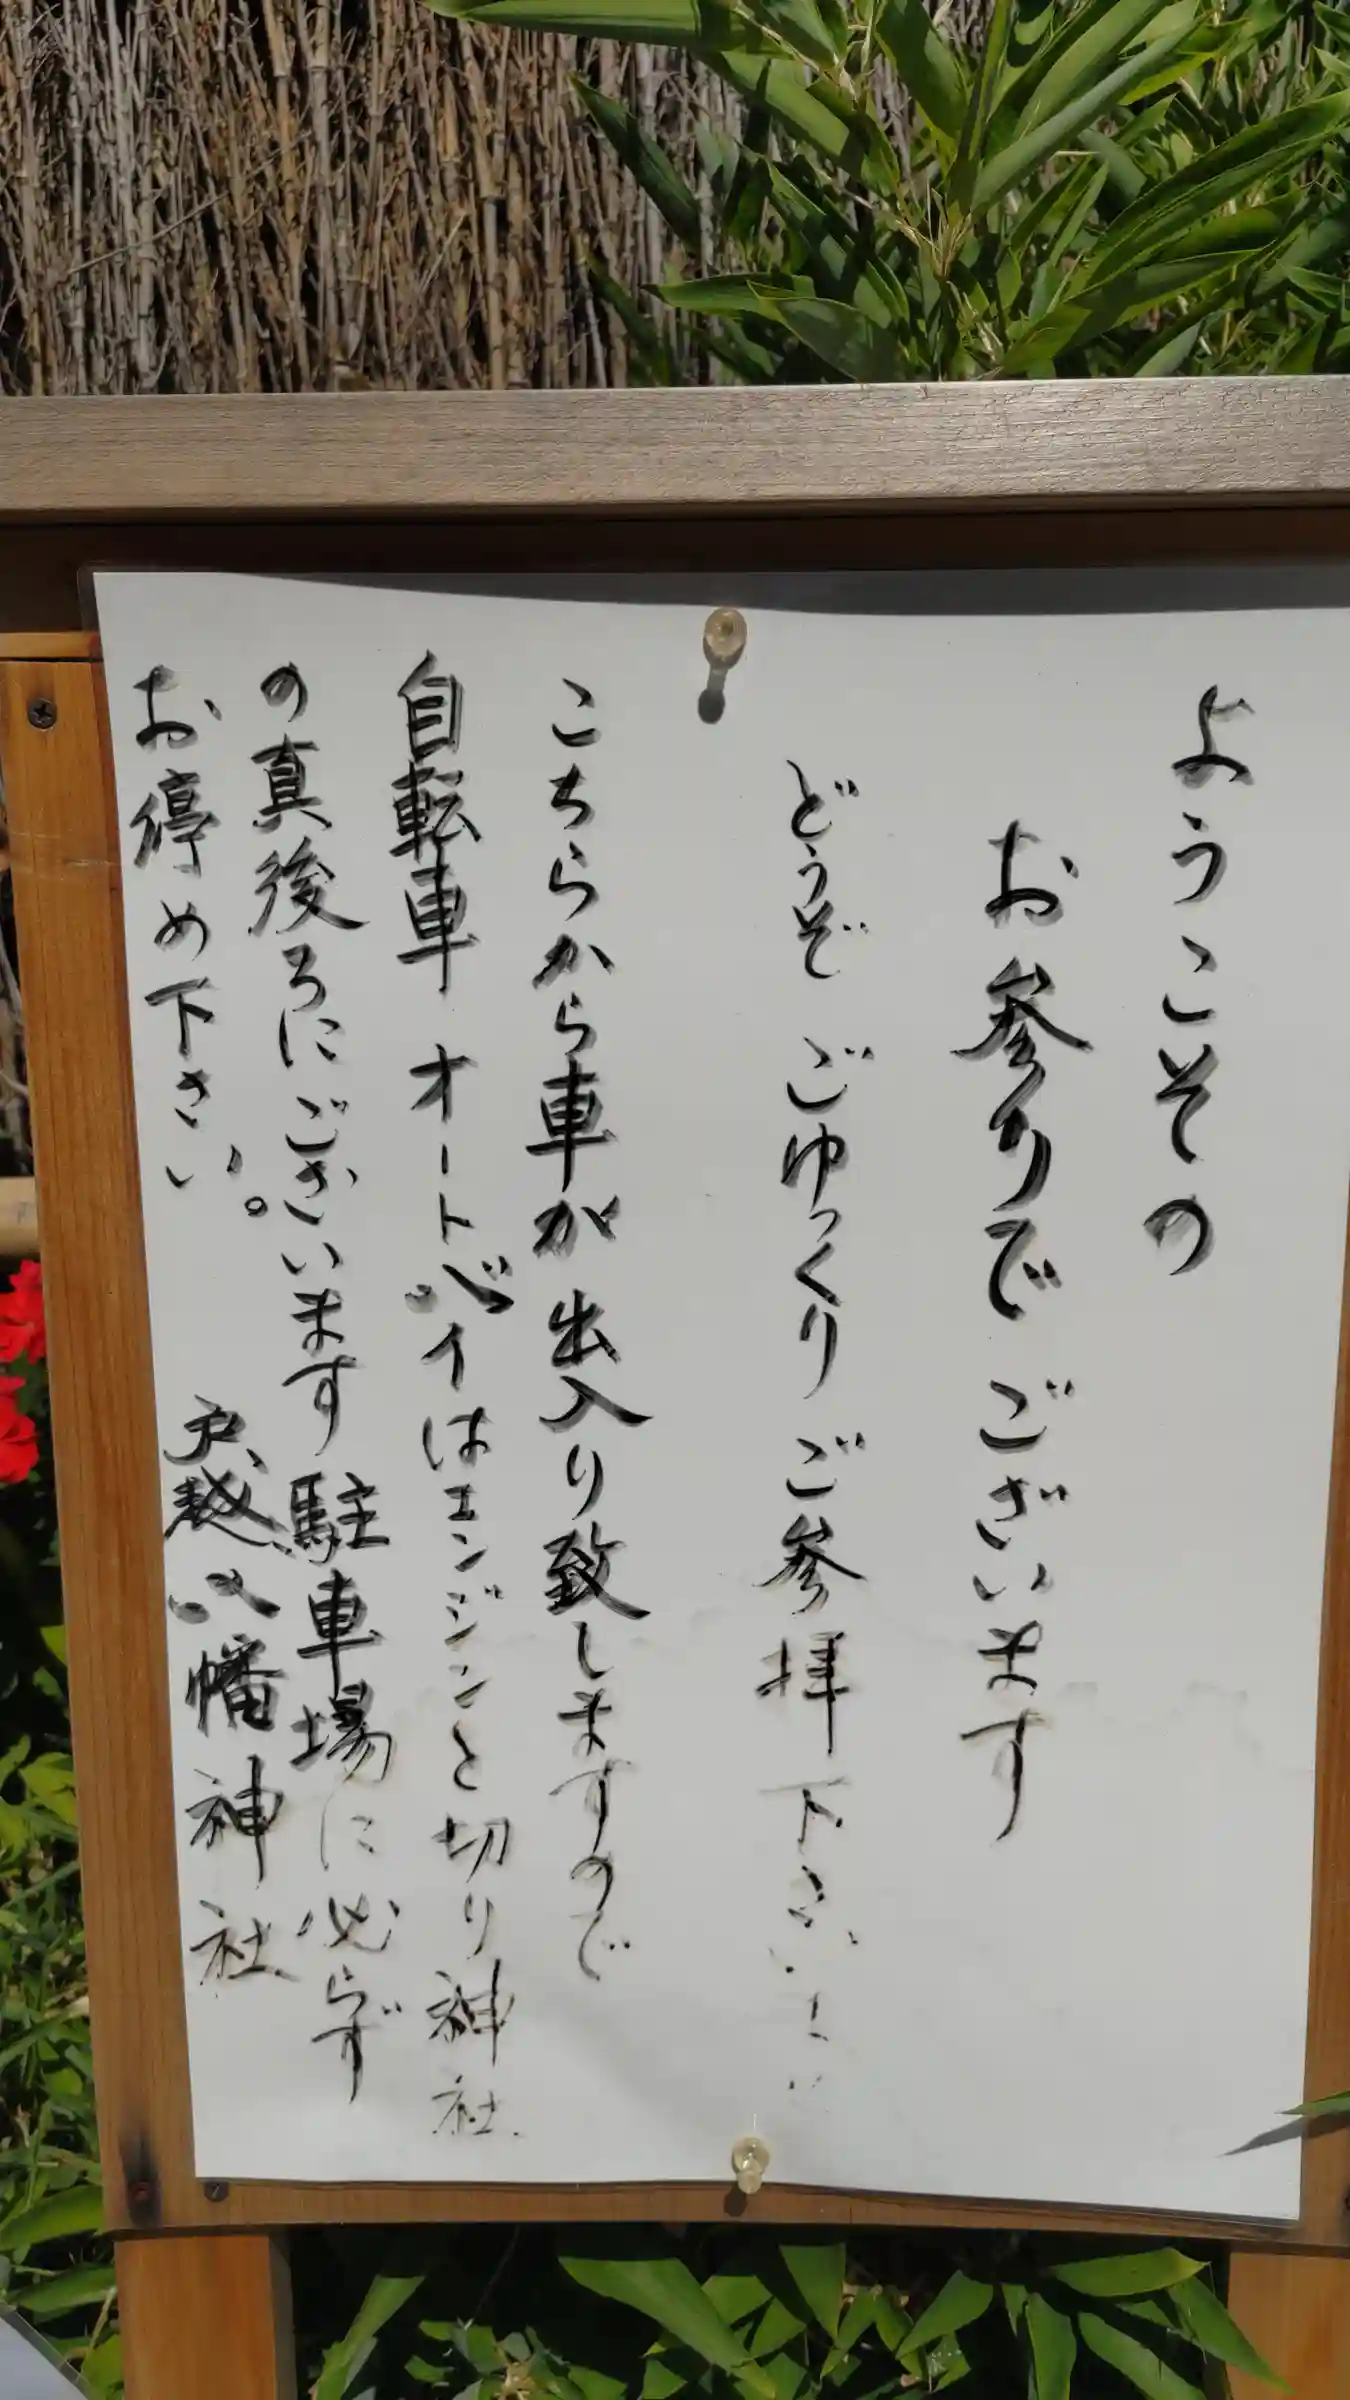 ようこその
お参りでございます
どうぞ ごゆっくり ご参拝下さいませ
こちらから車が出入り致しますので
自転車 オートバイはエンジンと切り神社
の真後ろにございます駐車場に必らず
お停め下さい。 戸越八幡神社